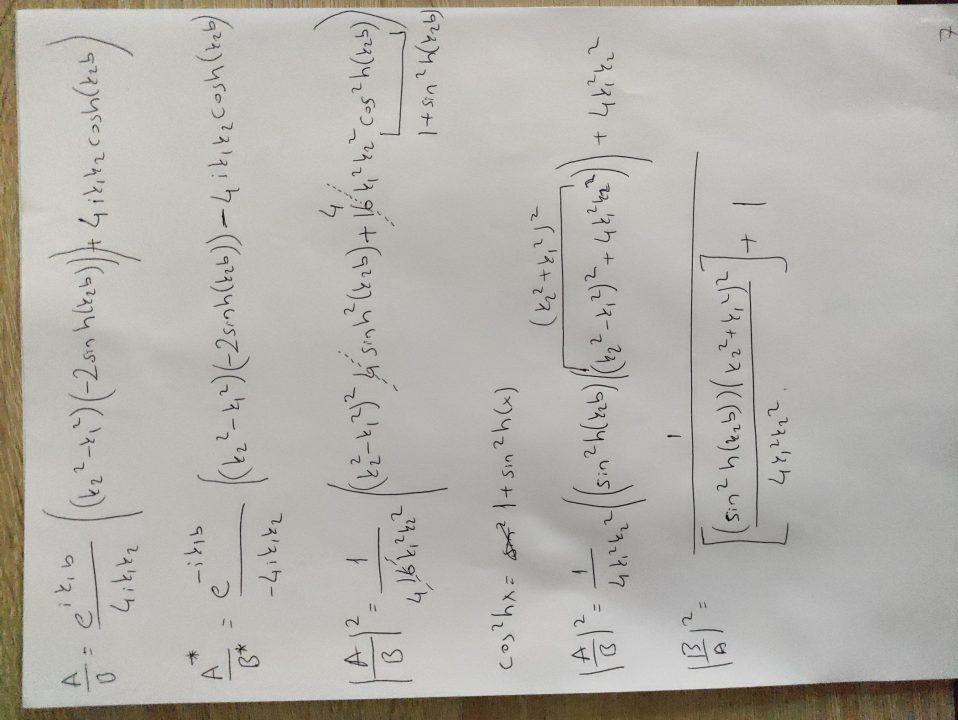 A/B = e^{ik₁b}/4ik₁k₂ ((k₂²-k₁²)(-2sinh(k₂b)) + 4ik₁k₂cosh(k₂b))
A*/B* = e^{-ik₁b}/-4ik₁k₂ ((k₂²-k₁²)(-2sinh(k₂b)) - 4ik₁k₂cosh(k₂b))
4
|A/B|² = 1/4 16k₁²k₂² ((k₂²-k₁²)² 4 sinh²(k₂b) + 16k₁²k₂² cos²h(k₂b))
1+sin²h(k₂b)
cos²hx = 1+sin²h(x)
(k₂²+k₁²)²
|A/B|² = 1/4k₁²k₂² ((sin²h(k₂b)((k₂²-k₁²)²+4k₁²k₂²)) + 4k₁²k₂²
|B/A|² = 1/[(sin²h(k₂b))(k₂²+k₁²)²/4k₁²k₂²] + 1
7